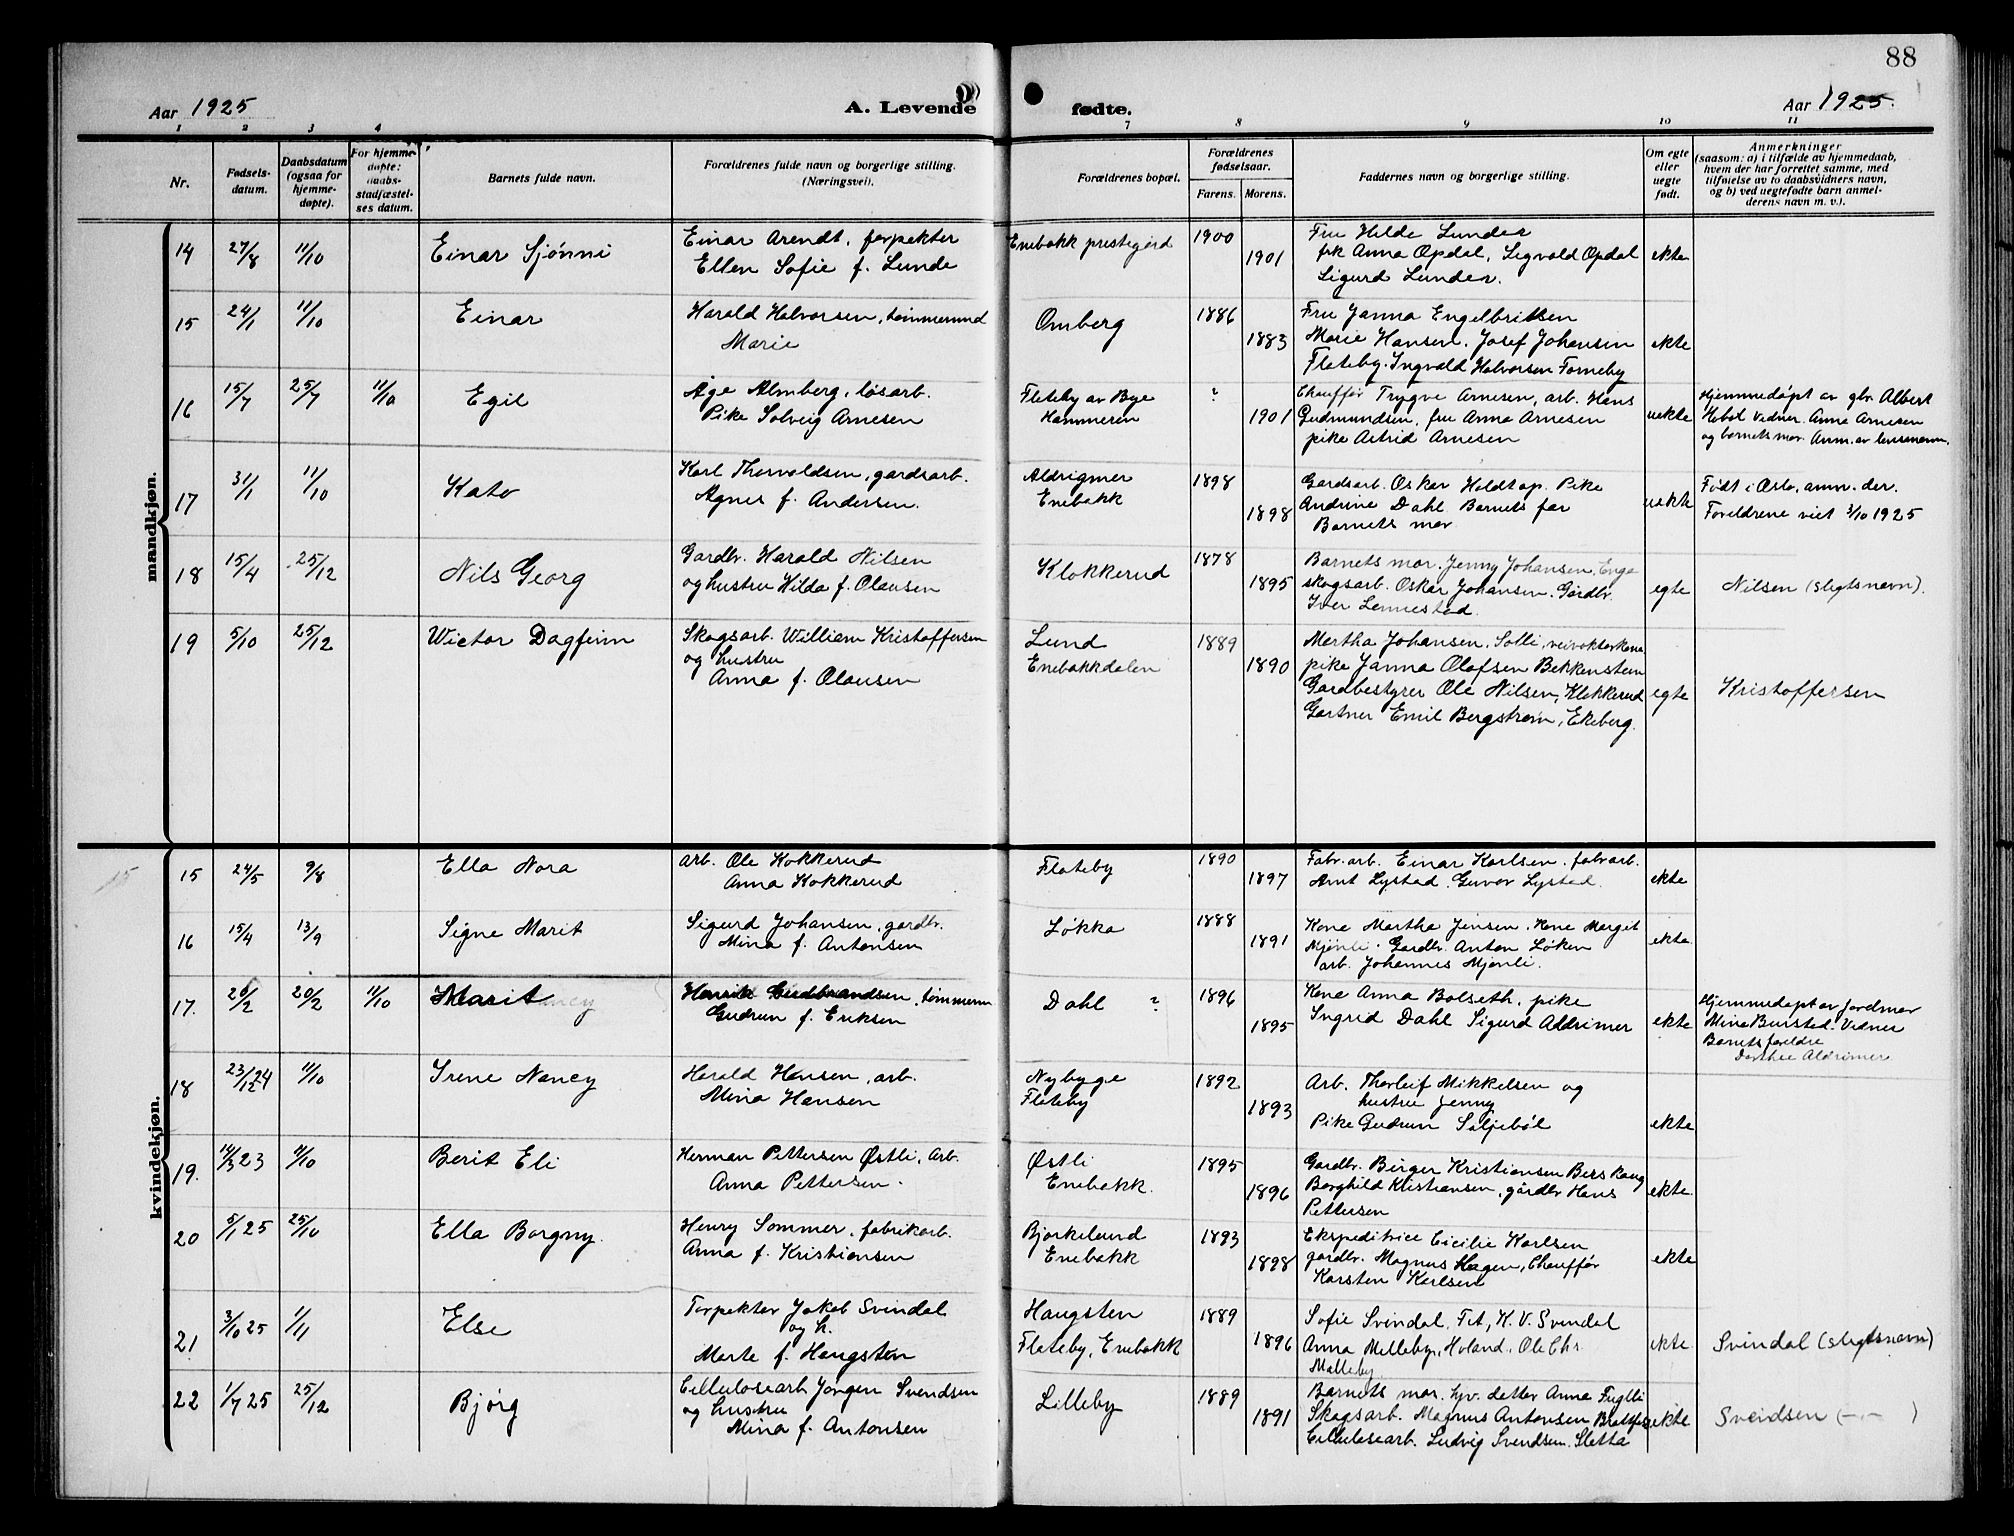 88
Aar 1925
A. Levende
fødte.
Aar 1925.
1 2 3 4 7 8 9 10 11
Nr.
Fødsels-
datum.
Daabsdatum
(ogsaa for
hjemme-
døpte).
For hjemme-
døpte:
daabs-
stadfæstel-
ses datum.
Barnets fulde navn.
Forældrenes fulde navn og borgerlige stilling.
(Næringsvei).
Forældrenes bopæl.
Forældrenes
fødselsaar.
Farens. Morens.
Faddernes navn og borgerlige stilling.
Om egte
eller
uegte
født.
Anmerkninger
(saasom: a) i tilfælde av hjemmedaab,
hvem der har forrettet samme, med
tilføielse av to daabsvidners navn,
og b) ved uegtefødte barn anmel-
derens navn m. v.).
mandkjøn.
14 27/8 11/10 Einar Sjønni
Einar Arendt, forpakter
Ellen Sofie f. Lunde
Enebakk prestegård
1900
1901
Fru Hilde Lunder
frk Anna Opdal, Sigvald Opdal
Sigurd Lunder.
ekte
15 24/1 11/10 Einar
Harald Halvorsen, tømmermand
Marie
Omberg
1886
1883
Fru Janna Engelbritsen
Marie Hansen. Josef Johansen
Flateby. Ingvald Halvorsen Forneby
ekte
16 15/7 25/7 11/10 Egil
Åge Almberg, løsarb.
Pike Solveig Arnesen
Flateby av Bye
Hammeren
?
1901
Chauffør Trygve Arnesen, arb. Hans
Gudmundsen, fru Anna Arnesen
pike Astrid Arnesen
uekte
Hjemmedøpt av gbr. Albert
Vidner. Anna Arnesen
og barnets mor. Anm. av lensmann.
17 31/1 11/10 Kato
Karl Thorvaldsen, gardsarb.
Agnes f. Andersen.
Aldrigmer
Enebakk
1898
1898
Gardsarb. Oskar Holdtop. Pike
Andrine Dahl Barnets far
Barnets mor
uekte
Født i Oslo, anm. der.
Foreldrene viet 3/10 1925
18 15/4 25/12 Nils Georg
Gardbr. Harald Nilsen
og hustru Hilda f. Olausen
Klokkerud
1878
1895
Barnets mor. Jenny Johansen, Enga
skogsarb. Oskar Johansen. Gårdbr.
Iver Lennestad.
egte
Nilsen (slegtsnavn).
19 5/10 25/12 Wictor Dagfinn
Skogsarb. William Kristoffersen
og hustru
Anna f. Olausen
Lund
Enebakkdalen
1889
1890
Martha Johansen, Solli, veivokterkone
pike Janna Olafsen Bekkensten
Gardbestyrer Ole Nilsen, Klokkerud
Gartner Emil Bergstrøm, Ekeberg.
egte
Kristoffersen
kvindekjøn.
15 24/5 9/8 Ella Nora
arb. Ole Kokkerud
Anna Kokkerud
Flateby
1890
1897
Fabr. arb. Einar Karlsen. fabr arb.
Arnt Lystad. Guvor Lystad.
ekte
16 15/4 13/9 Signe Marit
Sigurd Johansen, gardbr.
Mina f. Antonsen
Løkka
1888
1891
Kone Martha Jensen, Kone Margit
Mjønli. Gardbr. Anton Løken
arb. Johannes Mjønli.
ekte
17. 26/2 20/2 11/10 Marit
Henrik Gudbrandsen, tømmerm
Gudrun f. Eriksen
Dahl ?
1896
1895
Kone Anna Bolseth, pike
Ingrid Dahl Sigurd Aldrimer
ekte
Hjemmedøpt av Jordmor
Mina Burstad. Vidner
Barnets foreldre
Dorthee Aldrimer
18 23/12 24 11/10 Irene Nancy
Harald Hansen, arb.
Mina Hansen
Nybyge
Flateby
1892
1893
Arb. Thorleif Mikkelsen og
hustru Jenny
Pike Gudrun Seljebøl
ekte
19. 14/3 23 11/10 Berit Eli
Herman Pettersen Østli, Arb.
Anna Pettersen.
Østli
Enebakk.
1895
1896
Gardbr. Birger Kristiansen Berskaug
Borghild Kristiansen, gårdbr Hans
Pettersen
ekte
20 5/1 25 25/10 Ella Borgny.
Henry Sommer, fabrikarb.
Anna f. Kristiansen
Bjørkelund
Enebakk
1893
1898
Ekspeditrice Cicilie Karlsen
gardbr. Magnus Hagen, Chauffør
Karsten Karlsen
ekte
21 3/10 25 1/11 Else
Forpakter Jakob Svindal
og h.
Marte f. Haugsten
Haugsten
Flateby, Enebakk
1889
1896
Sofie Svindal, Fet, K. V. Svendal
Anna Melleby, Høland, Ole Chr.
Melleby
ekte
Svindal (slegtsnavn)
22 1/7 25 25/12 Bjørg
Cellulosearb Jørgen Svendsen
og hustru
Mina f. Antonsen
Lilleby
1889
1891
Barnets mor. hv. detter Anna Fuglli
Skogsarb. Magnus Antonsen
Cellulosearb. Ludvig Svendsen. Sletta
ekte
Svendsen (—„— )